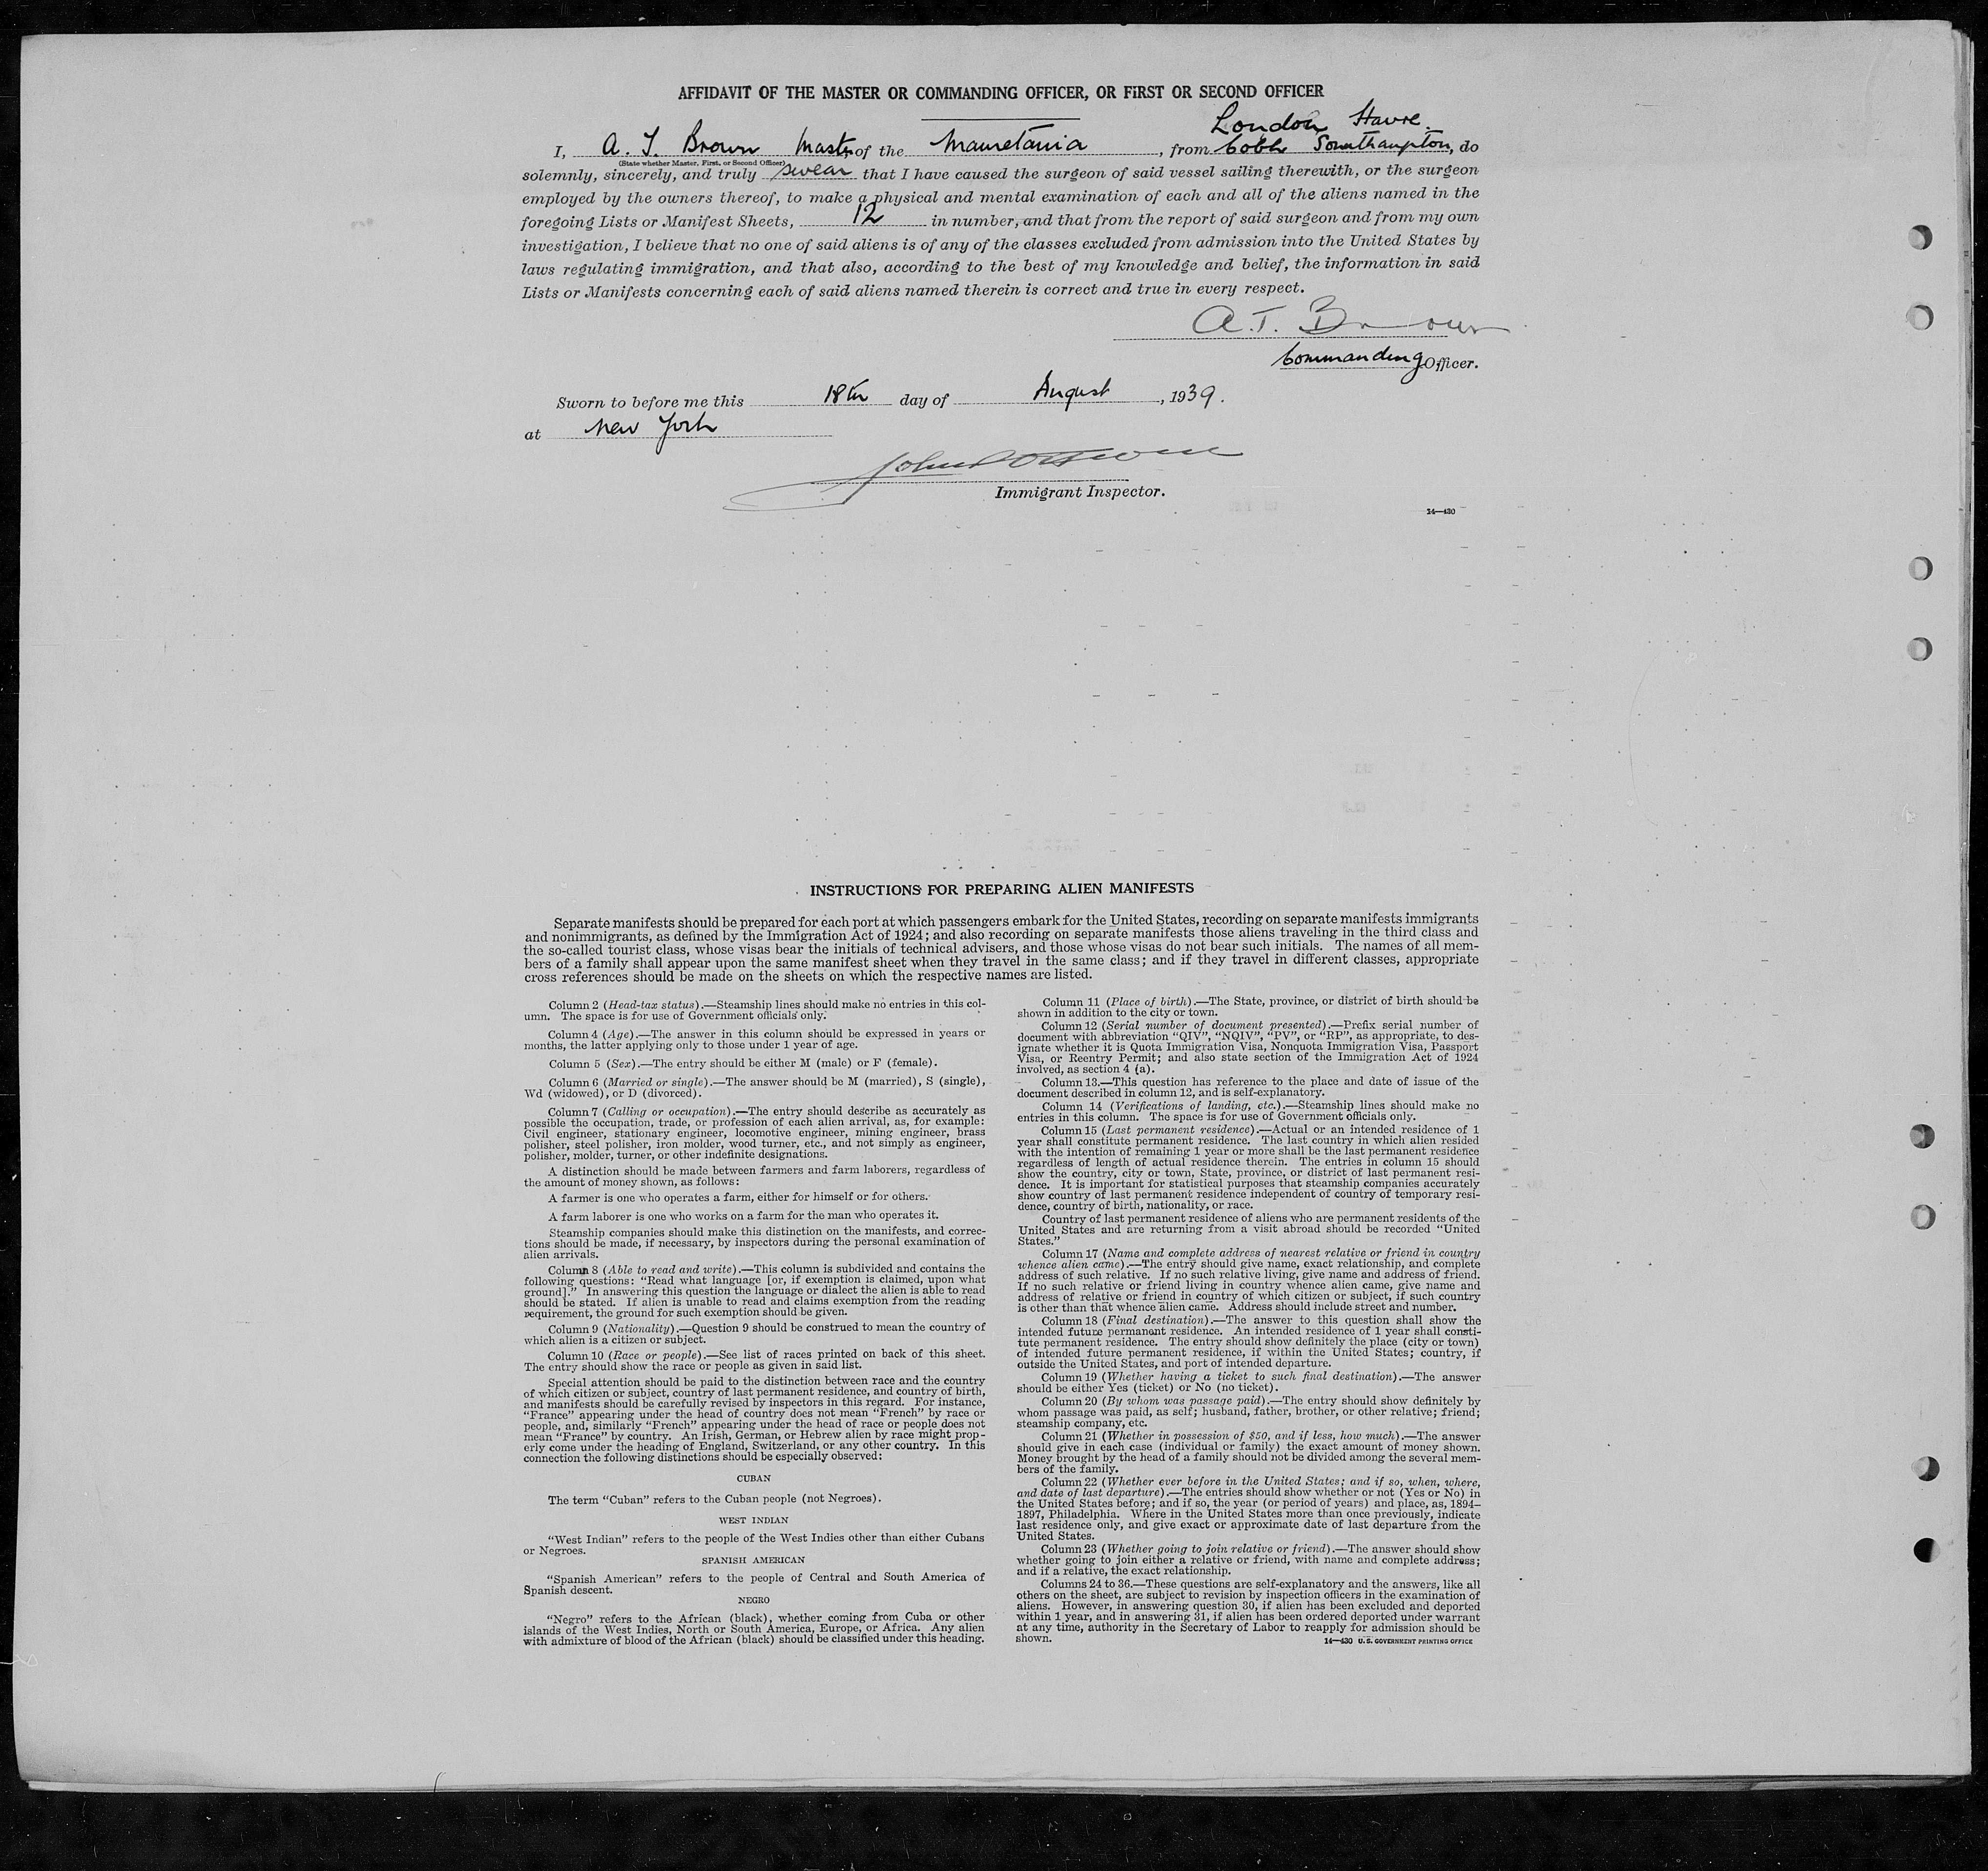 AFFIDAVIT OF THE MASTER OR COMMANDING OFFICER, OR FIRST OR SECOND OFFICER
London Havre.
I, A. T. Brown Master of the Mauretania, from Cobh Southampton, do
(State whether Master, First, or Second Officer)
solemnly, sincerely, and truly swear that I have caused the surgeon of said vessel sailing therewith, or the surgeon
employed by the owners thereof, to make a physical and mental examination of each and all of the aliens named in the
foregoing Lists or Manifest Sheets, 12 in number, and that from the report of said surgeon and from my own
investigation, I believe that no one of said aliens is of any of the classes excluded from admission into the United States by
laws regulating immigration, and that also, according to the best of my knowledge and belief, the information in said
Lists or Manifests concerning each of said aliens named therein is correct and true in every respect.
A. T. Brown
Commanding Officer.
Sworn to before me this 18th day of August, 1939.
at New York
John
Immigrant Inspector.
14—430
INSTRUCTIONS FOR PREPARING ALIEN MANIFESTS
Separate manifests should be prepared for each port at which passengers embark for the United States, recording on separate manifests immigrants
and nonimmigrants, as defined by the Immigration Act of 1924; and also recording on separate manifests those aliens traveling in the third class and
the so-called tourist class, whose visas bear the initials of technical advisers, and those whose visas do not bear such initials. The names of all mem-
bers of a family shall appear upon the same manifest sheet when they travel in the same class; and if they travel in different classes, appropriate
cross references should be made on the sheets on which the respective names are listed.
Column 2 (Head-tax status).—Steamship lines should make no entries in this col-
umn. The space is for use of Government officials only.
Column 4 (Age).—The answer in this column should be expressed in years or
months, the latter applying only to those under 1 year of age.
Column 5 (Sex).—The entry should be either M (male) or F (female).
Column 6 (Married or single).—The answer should be M (married), S (single),
Wd (widowed), or D (divorced).
Column 7 (Calling or occupation).—The entry should describe as accurately as
possible the occupation, trade, or profession of each alien arrival, as, for example:
Civil engineer, stationary engineer, locomotive engineer, mining engineer, brass
polisher, steel polisher, iron molder, wood turner, etc., and not simply as engineer,
polisher, molder, turner, or other indefinite designations.
A distinction should be made between farmers and farm laborers, regardless of
the amount of money shown, as follows:
A farmer is one who operates a farm, either for himself or for others.
A farm laborer is one who works on a farm for the man who operates it.
Steamship companies should make this distinction on the manifests, and correc-
tions should be made, if necessary, by inspectors during the personal examination of
alien arrivals.
Column 8 (Able to read and write).—This column is subdivided and contains the
following questions: “Read what language [or, if exemption is claimed, upon what
ground].” In answering this question the language or dialect the alien is able to read
should be stated. If alien is unable to read and claims exemption from the reading
requirement, the ground for such exemption should be given.
Column 9 (Nationality).—Question 9 should be construed to mean the country of
which alien is a citizen or subject.
Column 10 (Race or people).—See list of races printed on back of this sheet.
The entry should show the race or people as given in said list.
Special attention should be paid to the distinction between race and the country
of which citizen or subject, country of last permanent residence, and country of birth,
and manifests should be carefully revised by inspectors in this regard. For instance,
“France” appearing under the head of country does not mean “French” by race or
people, and, similarly “French” appearing under the head of race or people does not
mean “France” by country. An Irish, German, or Hebrew alien by race might prop-
erly come under the heading of England, Switzerland, or any other country. In this
connection the following distinctions should be especially observed:
CUBAN
The term “Cuban” refers to the Cuban people (not Negroes).
WEST INDIAN
“West Indian” refers to the people of the West Indies other than either Cubans
or Negroes.
SPANISH AMERICAN
“Spanish American” refers to the people of Central and South America of
Spanish descent.
NEGRO
“Negro” refers to the African (black), whether coming from Cuba or other
islands of the West Indies, North or South America, Europe, or Africa. Any alien
with admixture of blood of the African (black) should be classified under this heading.
Column 11 (Place of birth).—The State, province, or district of birth should be
shown in addition to the city or town.
Column 12 (Serial number of document presented).—Prefix serial number of
document with abbreviation “QIV”, “NQIV”, “PV”, or “RP”, as appropriate, to des-
ignate whether it is Quota Immigration Visa, Nonquota Immigration Visa, Passport
Visa, or Reentry Permit; and also state section of the Immigration Act of 1924
involved, as section 4 (a).
Column 13.—This question has reference to the place and date of issue of the
document described in column 12, and is self-explanatory.
Column 14 (Verifications of landing, etc.).—Steamship lines should make no
entries in this column. The space is for use of Government officials only.
Column 15 (Last permanent residence).—Actual or an intended residence of 1
year shall constitute permanent residence. The last country in which alien resided
with the intention of remaining 1 year or more shall be the last permanent residence
regardless of length of actual residence therein. The entries in column 15 should
show the country, city or town, State, province, or district of last permanent resi-
dence. It is important for statistical purposes that steamship companies accurately
show country of last permanent residence independent of country of temporary resi-
dence, country of birth, nationality, or race.
Country of last permanent residence of aliens who are permanent residents of the
United States and are returning from a visit abroad should be recorded “United
States.”
Column 17 (Name and complete address of nearest relative or friend in country
whence alien came).—The entry should give name, exact relationship, and complete
address of such relative. If no such relative living, give name and address of friend.
If no such relative or friend living in country whence alien came, give name and
address of relative or friend in country of which citizen or subject, if such country
is other than that whence alien came. Address should include street and number.
Column 18 (Final destination).—The answer to this question shall show the
intended future permanent residence. An intended residence of 1 year shall consti-
tute permanent residence. The entry should show definitely the place (city or town)
of intended future permanent residence, if within the United States; country, if
outside the United States, and port of intended departure.
Column 19 (Whether having a ticket to such final destination).—The answer
should be either Yes (ticket) or No (no ticket).
Column 20 (By whom was passage paid).—The entry should show definitely by
whom passage was paid, as self; husband, father, brother, or other relative; friend;
steamship company, etc.
Column 21 (Whether in possession of $50, and if less, how much).—The answer
should give in each case (individual or family) the exact amount of money shown.
Money brought by the head of a family should not be divided among the several mem-
bers of the family.
Column 22 (Whether ever before in the United States; and if so, when, where,
and date of last departure).—The entries should show whether or not (Yes or No) in
the United States before; and if so, the year (or period of years) and place, as, 1894–
1897, Philadelphia. Where in the United States more than once previously, indicate
last residence only, and give exact or approximate date of last departure from the
United States.
Column 23 (Whether going to join relative or friend).—The answer should show
whether going to join either a relative or friend, with name and complete address;
and if a relative, the exact relationship.
Columns 24 to 36.—These questions are self-explanatory and the answers, like all
others on the sheet, are subject to revision by inspection officers in the examination of
aliens. However, in answering question 30, if alien has been excluded and deported
within 1 year, and in answering 31, if alien has been ordered deported under warrant
at any time, authority in the Secretary of Labor to reapply for admission should be
shown.
14—430 U.S. GOVERNMENT PRINTING OFFICE